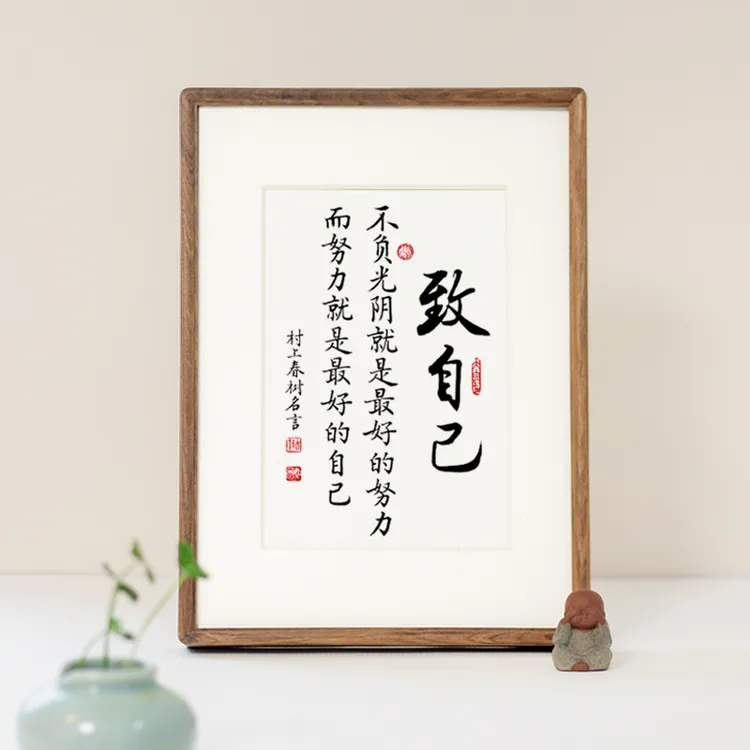 致自己
不负光阴就是最好的努力
而努力就是最好的自己
村上春树名言